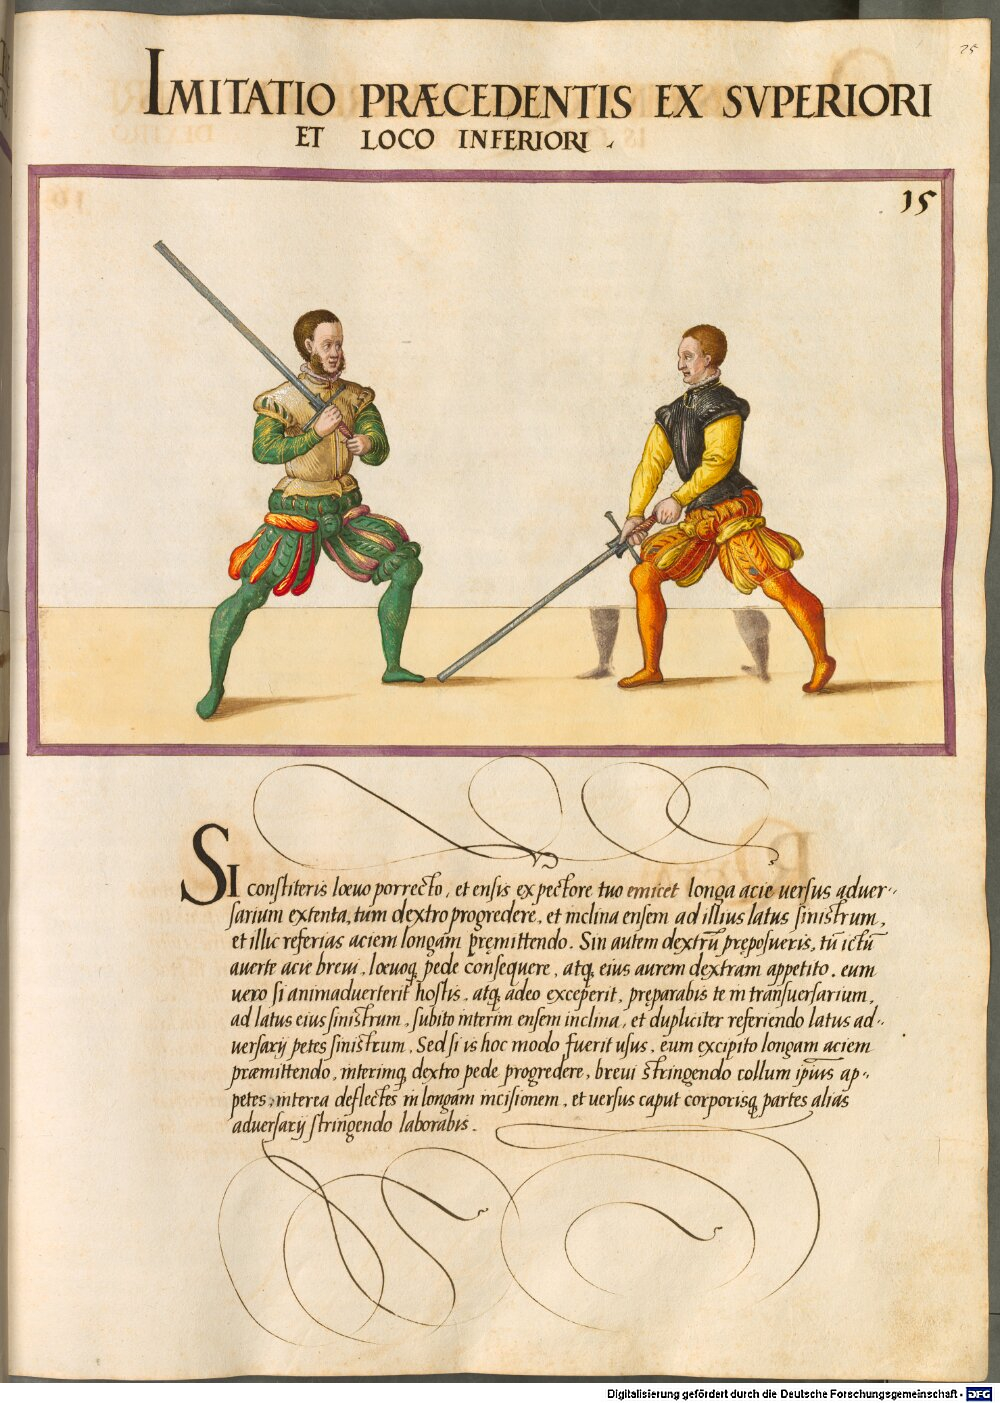 25
IMITATIO PRÆCEDENTIS EX SVPERIORI
ET LOCO INFERIORI .
15
SI constiteris lœuo porrecto, et ensis ex pectore tuo emicet longa acie uersus aduer=
sarium extenta, tum dextro progredere, et inclina ensem ad illius latus sinistrum,
et illic referias aciem longam pręmittendo. Sin autem dextrũ pręposueris, tũ ictũ
auerte acie breui, lœuoq; pede consequere, atq; eius aurem dęxtram appetito. eum
uero si animaduerterit hostis, atq; adeo exceperit, pręparabis te in transuersarium,
ad latus eius sinistrum, subito interim ensem inclina, et dupliciter referiendo latus ad=
uersarij petes sinistrum. Sed si is hoc modo fuerit usus, eum excipito longam aciem
præmittendo, interimq; dextro pede progredere, breui stringendo collum ipsius ap=
petes, interea deflectes in longam incisionem, et uersus caput corporisq; partes alias
aduersarij stringendo laborabis.
Digitalisierung gefördert durch die Deutsche Forschungsgemeinschaft - DFG